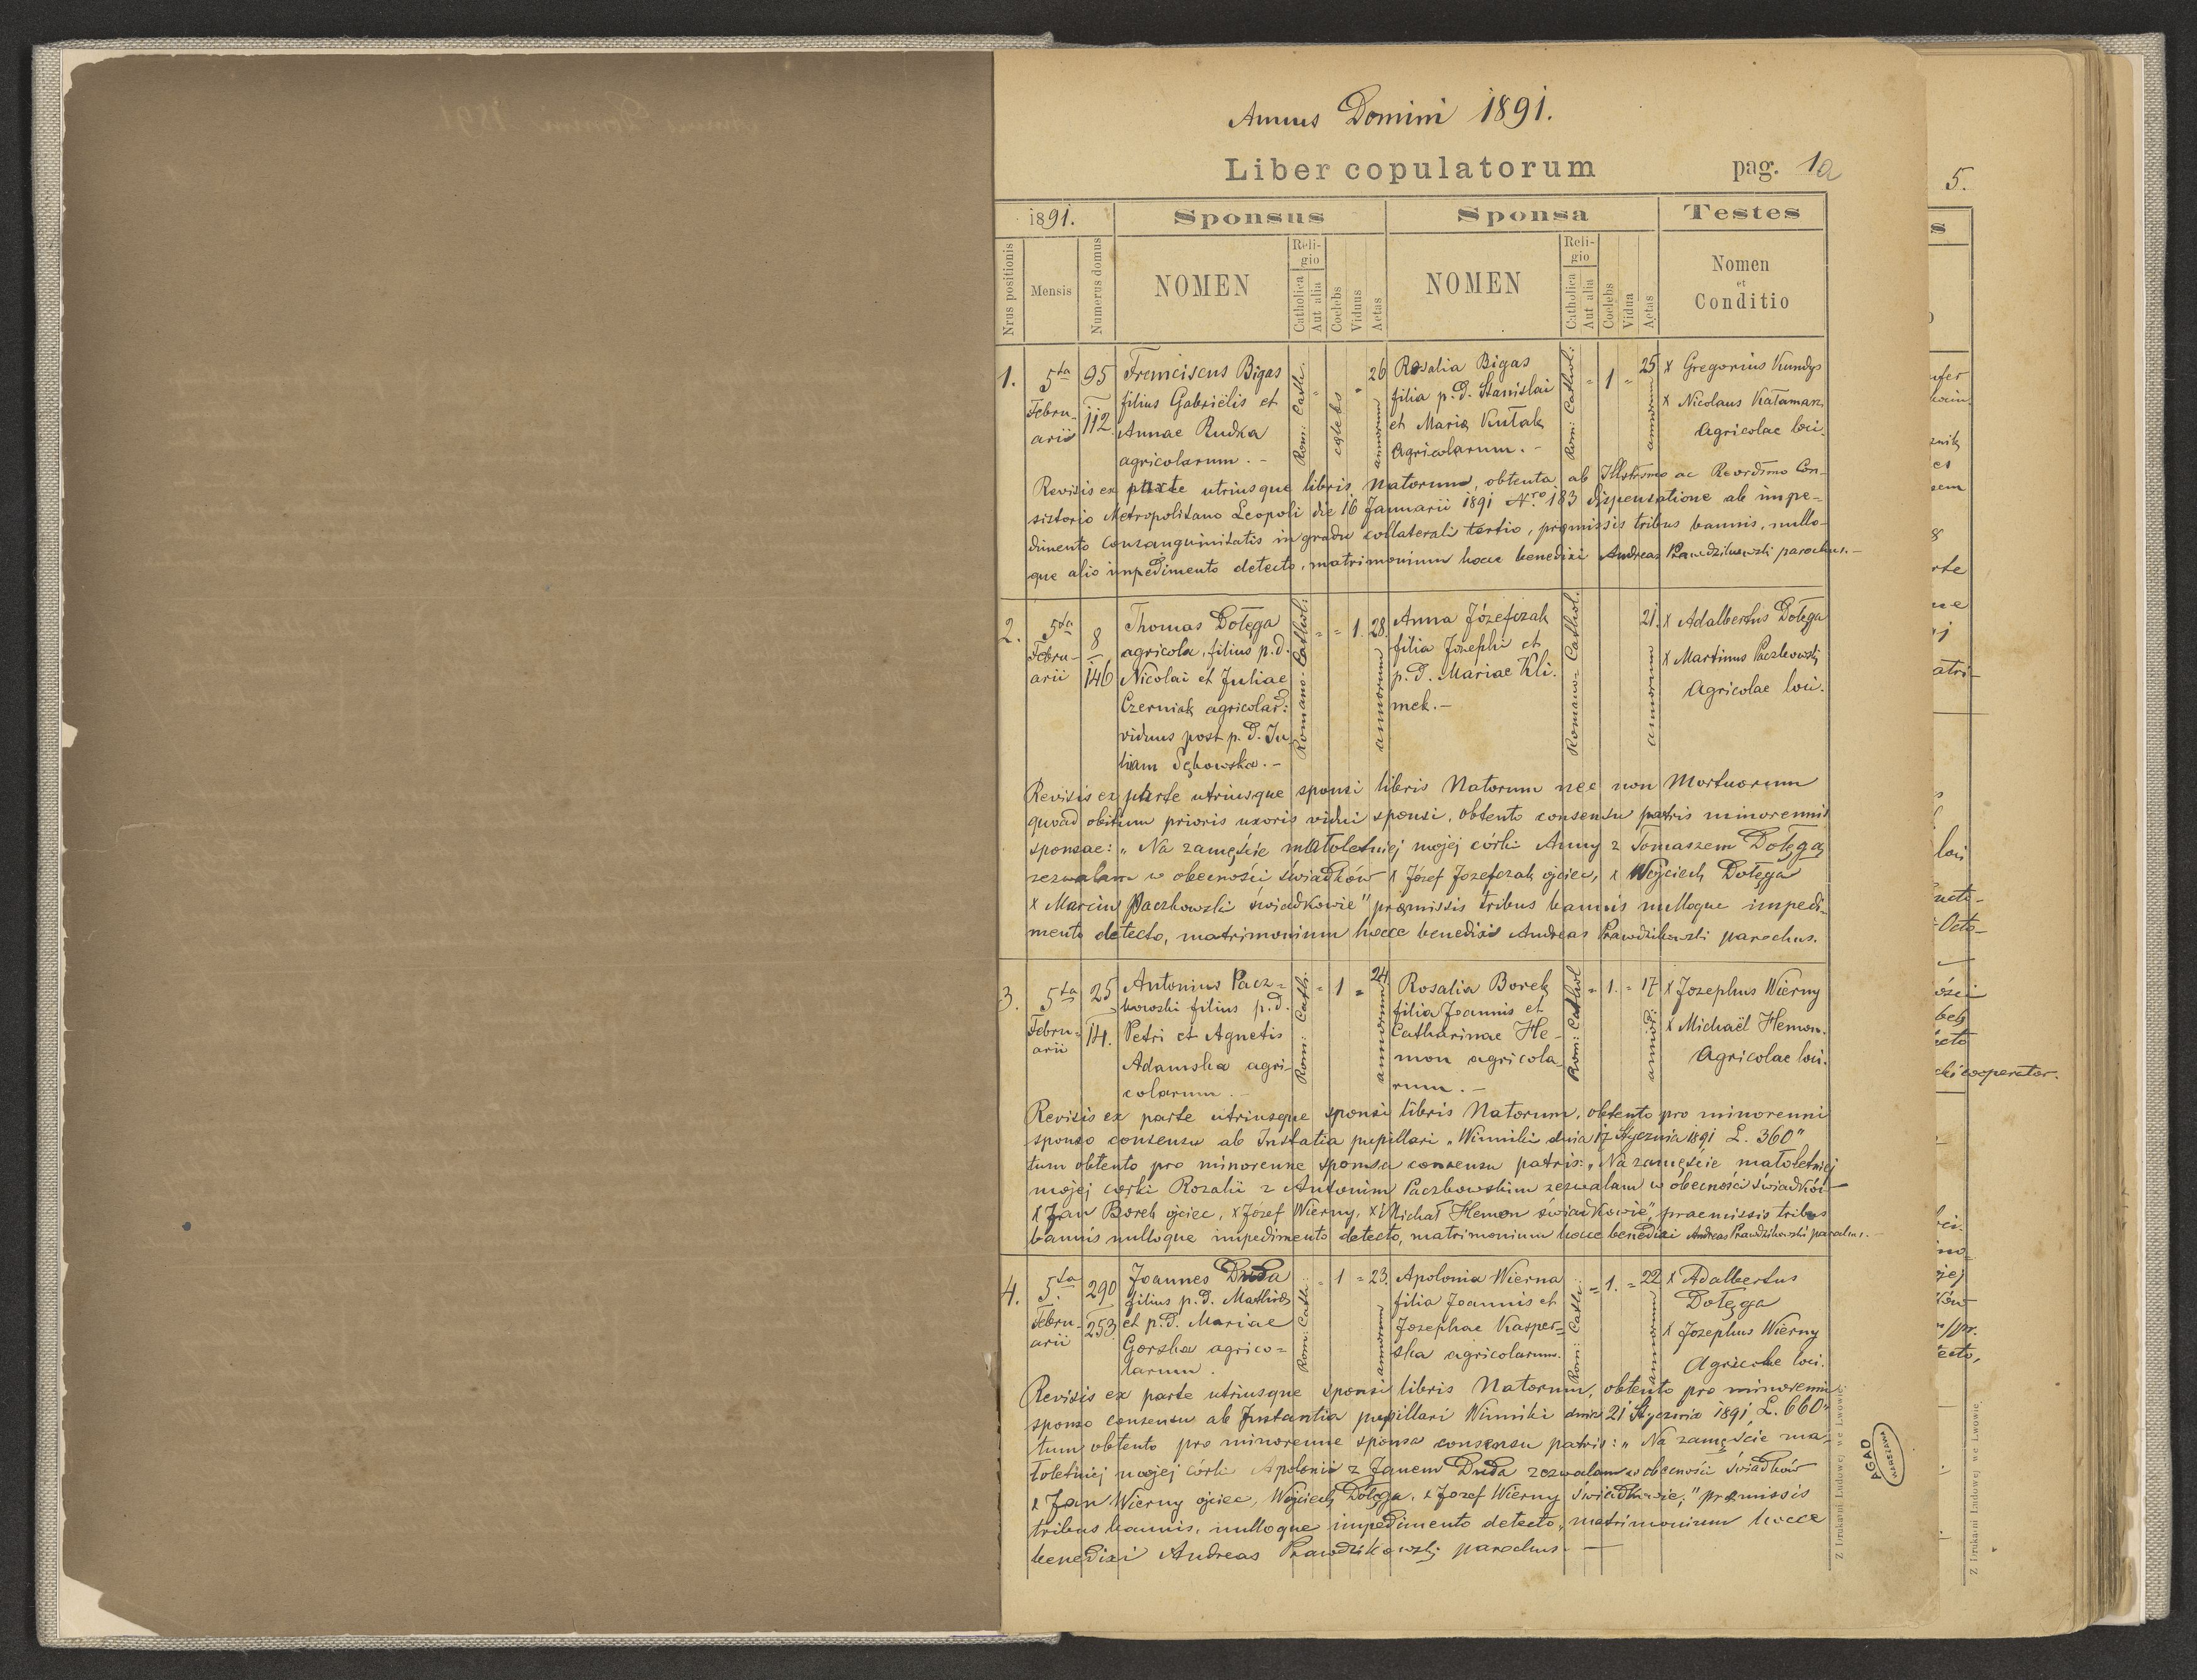 Annus Domini 1891.
Liber copulatorum pag. 1a
1891. Sponsus Sponsa Testes
Nrus positionis Mensis Numerus domus NOMEN Religio Catholica Aut alia Coelebs Viduus Aetas NOMEN Religio Catholica Aut alia Coelebs Vidua Aetas Nomen et Conditio
1. 5ta Februarii 95 112
Franciscus Bigas
filius Gabriëlis et
Annae Rudka
agricolarum. -
Rom: Cath: " cęlebs " 26 annorum
Rosalia Bigas
filia p. d. Stanislai
et Marię Kutak
agricolarum. -
Rom: Cathol: " 1 " 25 annorum
x Gregorius Kundys
x Nicolaus Kataman,
Agricolae loci.
Revisis ex parte utriusque libris Natorum, obtenta ab Illstrmo ac Revrdsmo Con-
sistorio Metropolitano Leopoli die 16 Januarii 1891 Nro 183 dispensatione ab impe-
dimento consanguinitatis in gradu collaterali tertio, pręmissis tribus bannis, nullo-
que alio impedimento detecto, matrimonium hocce benedixi Andreas Prawdzikowski parochus. -
2. 5ta Februarii 8 146
Thomas Dołęga
agricola, filius p. d.
Nicolai et Juliae
Czerniak agricolar:
viduus post p. d. Ju-
liam Sękowska. -
Romano-Cathol: " " 1. 28. annorum
Anna Józefczak
filia Josephi et
p. d. Mariae Kli-
mek. -
Romano-Cathol. 21. annorum
x Adalbertus Dołęga
x Martinus Paczkowski
Agricolae loci.
Revisis ex parte utriusque sponsi libris Natorum nec non Mortuorum
quoad obitum prioris uxoris vidui sponsi, obtento consensu patris minorennis
sponsae: „Na zamęście małoletniej mojej córki Anny z Tomaszem Dołęgą
zezwalam w obecności świadków x Józef Jozefczak ojciec, x Wojciech Dołęga
x Marcin Paczkowski świadkowie" pręmissis tribus bannis nulloque impedi-
mento detecto, matrimonium hocce benedixi Andreas Prawdzikowski parochus.
3. 5ta Februarii 25 14.
Antonius Pacz-
kowski filius p. d.
Petri et Agnetis
Adamska agri-
colarum. -
Rom: Cath: " 1 " 24. annorum
Rosalia Borek
filia Joannis et
Catharinae He-
mon agricola-
rum. -
Rom: Cathol " 1. " 17 annor:
x Josephus Wierny
x Michaël Hemon.
Agricolae loci.
Revisis ex parte utriusque sponsi libris Natorum, obtento pro minorenni
sponso consensu ab Instatia pupillari „Winniki dnia 17 Stycznia 1891 L. 360"
tum obtento pro minorenne sponsa consensu patris: „Na zamęście małoletniej
mojej córki Rozalii z Antonim Paczkowskim zezwalam w obecności świadków
x Jan Borek ojciec, x Józef Wierny, x Michał Hemon świadkowie", praemissis tribus
bannis nulloque impedimento detecto, matrimonium hocce benedixi Andreas Prawdzikowski parochus. -
4. 5ta Februarii 290 253.
Joannes Duda
filius p. d. Mathiæ
et p. d. Mariae
Gorska agrico-
larum.
Rom: Cath: " 1 " 23. annorum
Apolonia Wierna
filia Joannis et
Josephae Kasper-
ska agricolarum.
Rom: Cath: " 1. " 22 annorum
x Adalbertus
Dołęga
x Josephus Wierny
Agricolae loci.
Revisis ex parte utriusque sponsi libris Natorum, obtento pro minorenni
sponso consensu ab Instantia pupillari Winniki dnia 21 Stycznia 1891 L. 660"
tum obtento pro minorenne sponsa consensu patris: „Na zamęście ma-
łoletniej mojej córki Apolonii z Janem Duda zezwalam w obecności świadków
x Jan Wierny ojciec, Wojciech Dołęga, x Jozef Wierny świadkowie," pręmissis
tribus bannis, nulloque impedimento detecto, matrimonium hocce
benedixi Andreas Prawdzikowski parochus. -
Z Drukarni Ludowej we Lwowie.
AGAD WARSZAWA
5.
cooperator.
Z Drukarni Ludowej we Lwowie